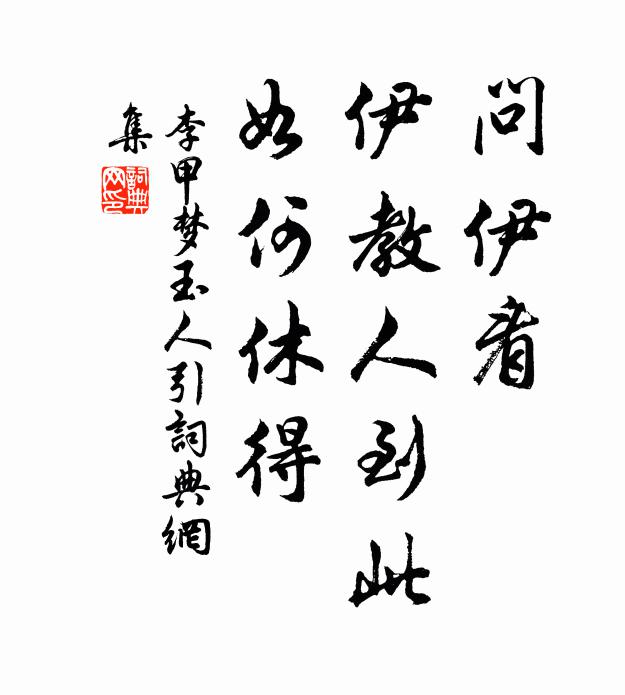 問伊看
伊教人到此
如何休得
李甲梦玉人引詞典網
集
詞典
网印